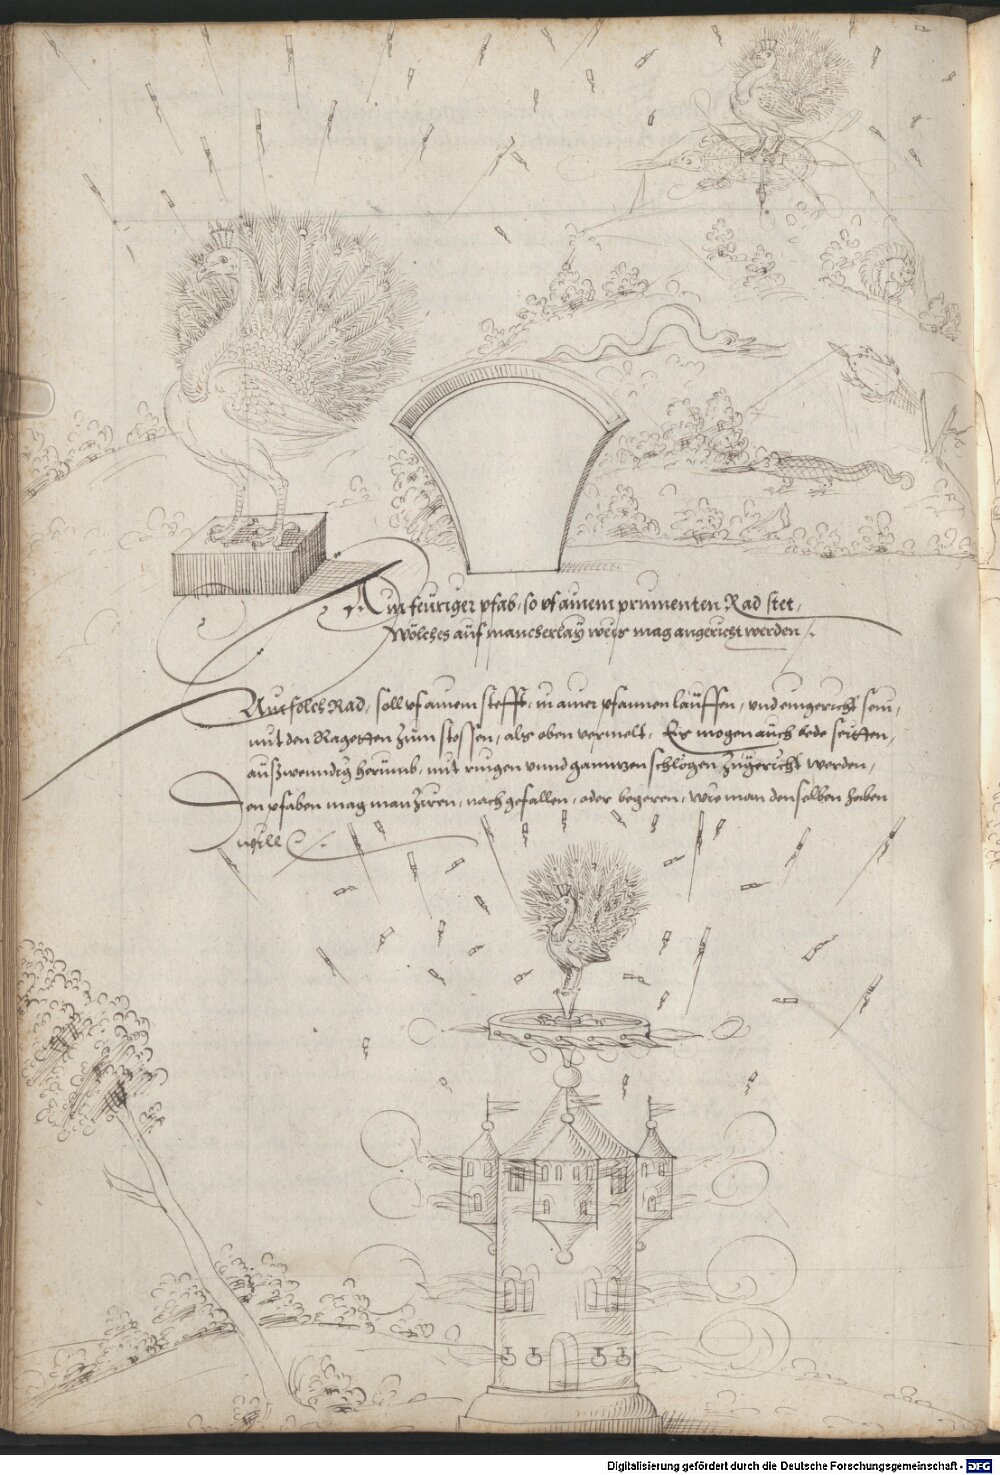 Ain feüriger pfab, so uf ainem prinnenten Rad stet,
Wölches auf mancherlay weys mag angericht werden
Ain solch Rad, soll uf ainem stefft, in ainer pfannen lauffen, und eingericht sein,
mit den Ragetten zum stossen, als oben vermelt, Es mogen auch bede seitten,
außwenndig herumb, mit ringen unnd ganntzen schlögen zugericht werden,
Den pfaben mag man ziren, nach gefallen, oder begeren, wie man denselben haben
will
Digitalisierung gefördert durch die Deutsche Forschungsgemeinschaft - DFG